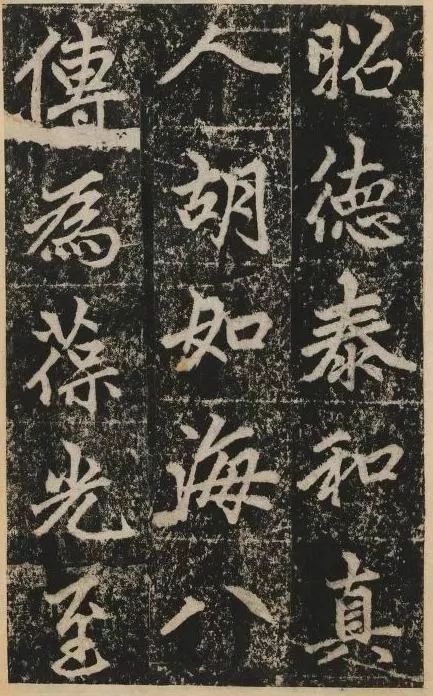 昭德泰和真
人胡如海八
傳為葆光至